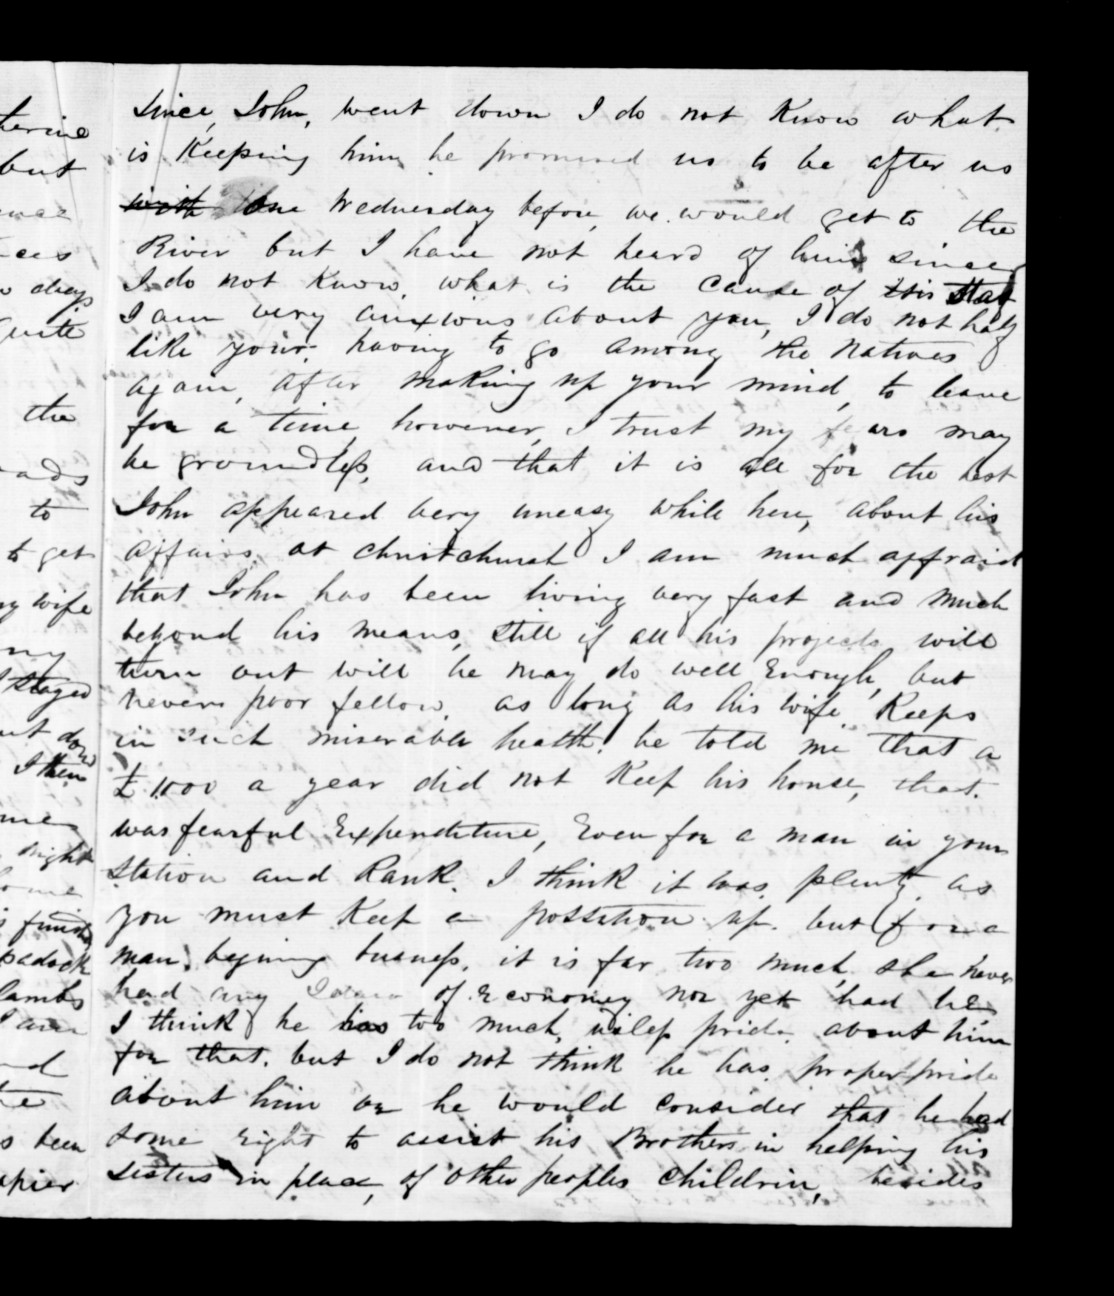 since, John, went down I do not Know what
is Keeping him he promised us to be after us
with the Wednesday before, we would get to the
River but I have not heard of him since
I do not Know, what is the cause of this stat
I am very anxious about you, I do not half
like your, having to go among the Natives
again, after making up your mind, to leave
for a time, however, I trust my fears may
be groundless, and that it is all for the best
John appeared very uneasy while here, about his
affairs at christchurch I am much affraid
that John has been living very fast and much
behond his means, still if all his projects will
turn out will he may do well Enough, but
never poor fellow as long as his wife, Keeps
in such miserable health, he told me that a
£1000 a year did not Keep his house, that
was fearful Expenditure, Even for a man in your
Station and Rank. I think it was plenty as
you must Keep a possition up. but for a
man, begining busness, it is far two much, she never
had any of Economey nor yet had he,
I think he has too much, usless pride about him
for that. but I do not think he has proper pride
about him or he would consider that he had
some right to assist his Brothers in helping his
sisters in place, of other peoples children, besides
therine
but
ces
days
quite
the
ads
to
to get
my wife
my
stayed
I then
night
home
padock
lambs
I am
the
been
apier